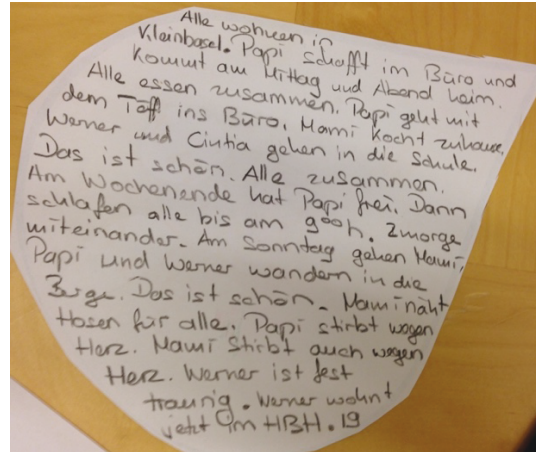 Alle wohnen in
Kleinbasel. Papi schafft im Büro und
kommt am Mittag und Abend heim.
Alle essen zusammen. Papi geht mit
dem Töff ins Büro. Mami kocht zuhause.
Werner und Cintia gehen in die Schule.
Das ist schön. Alle zusammen.
Am Wochenende hat Papi frei. Dann
schlafen alle bis am 900h. Zmorge
miteinander. Am Sonntag gehen Mami,
Papi und Werner wandern in die
Berge. Das ist schön. Mami näht
Hosen für alle. Papi stirbt wegen
Herz. Mami stirbt auch wegen
Herz. Werner ist fest
traurig. Werner wohnt
jetzt im HBH. 19